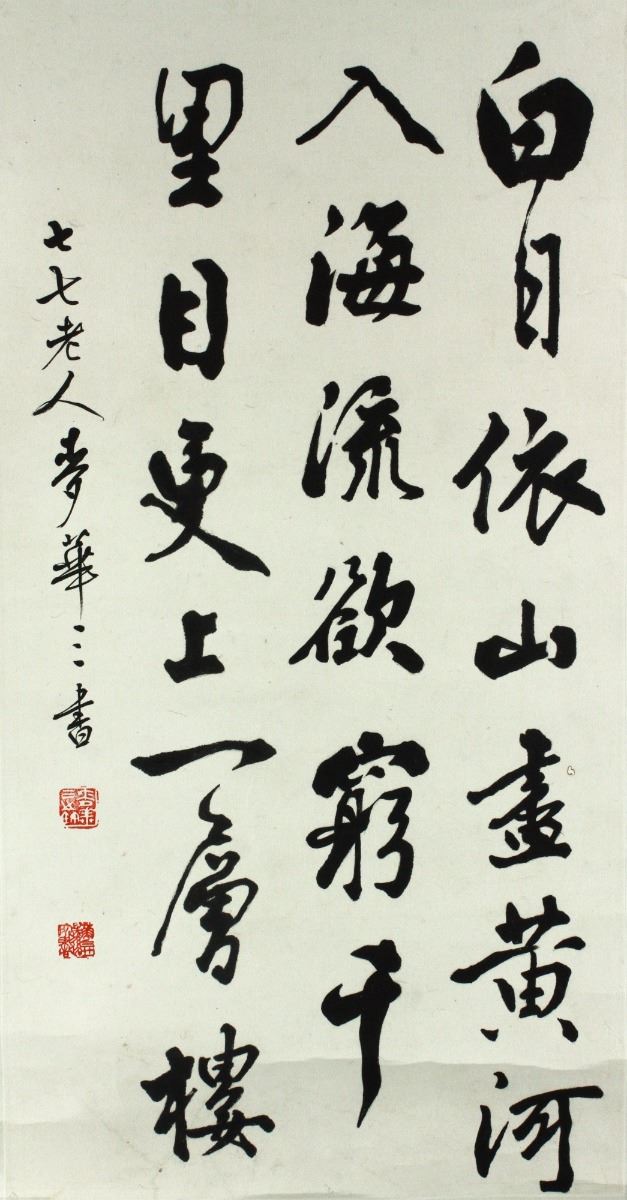 白日依山盡黃河
入海流欲窮千
里目更上一層樓
七七老人麥華三書